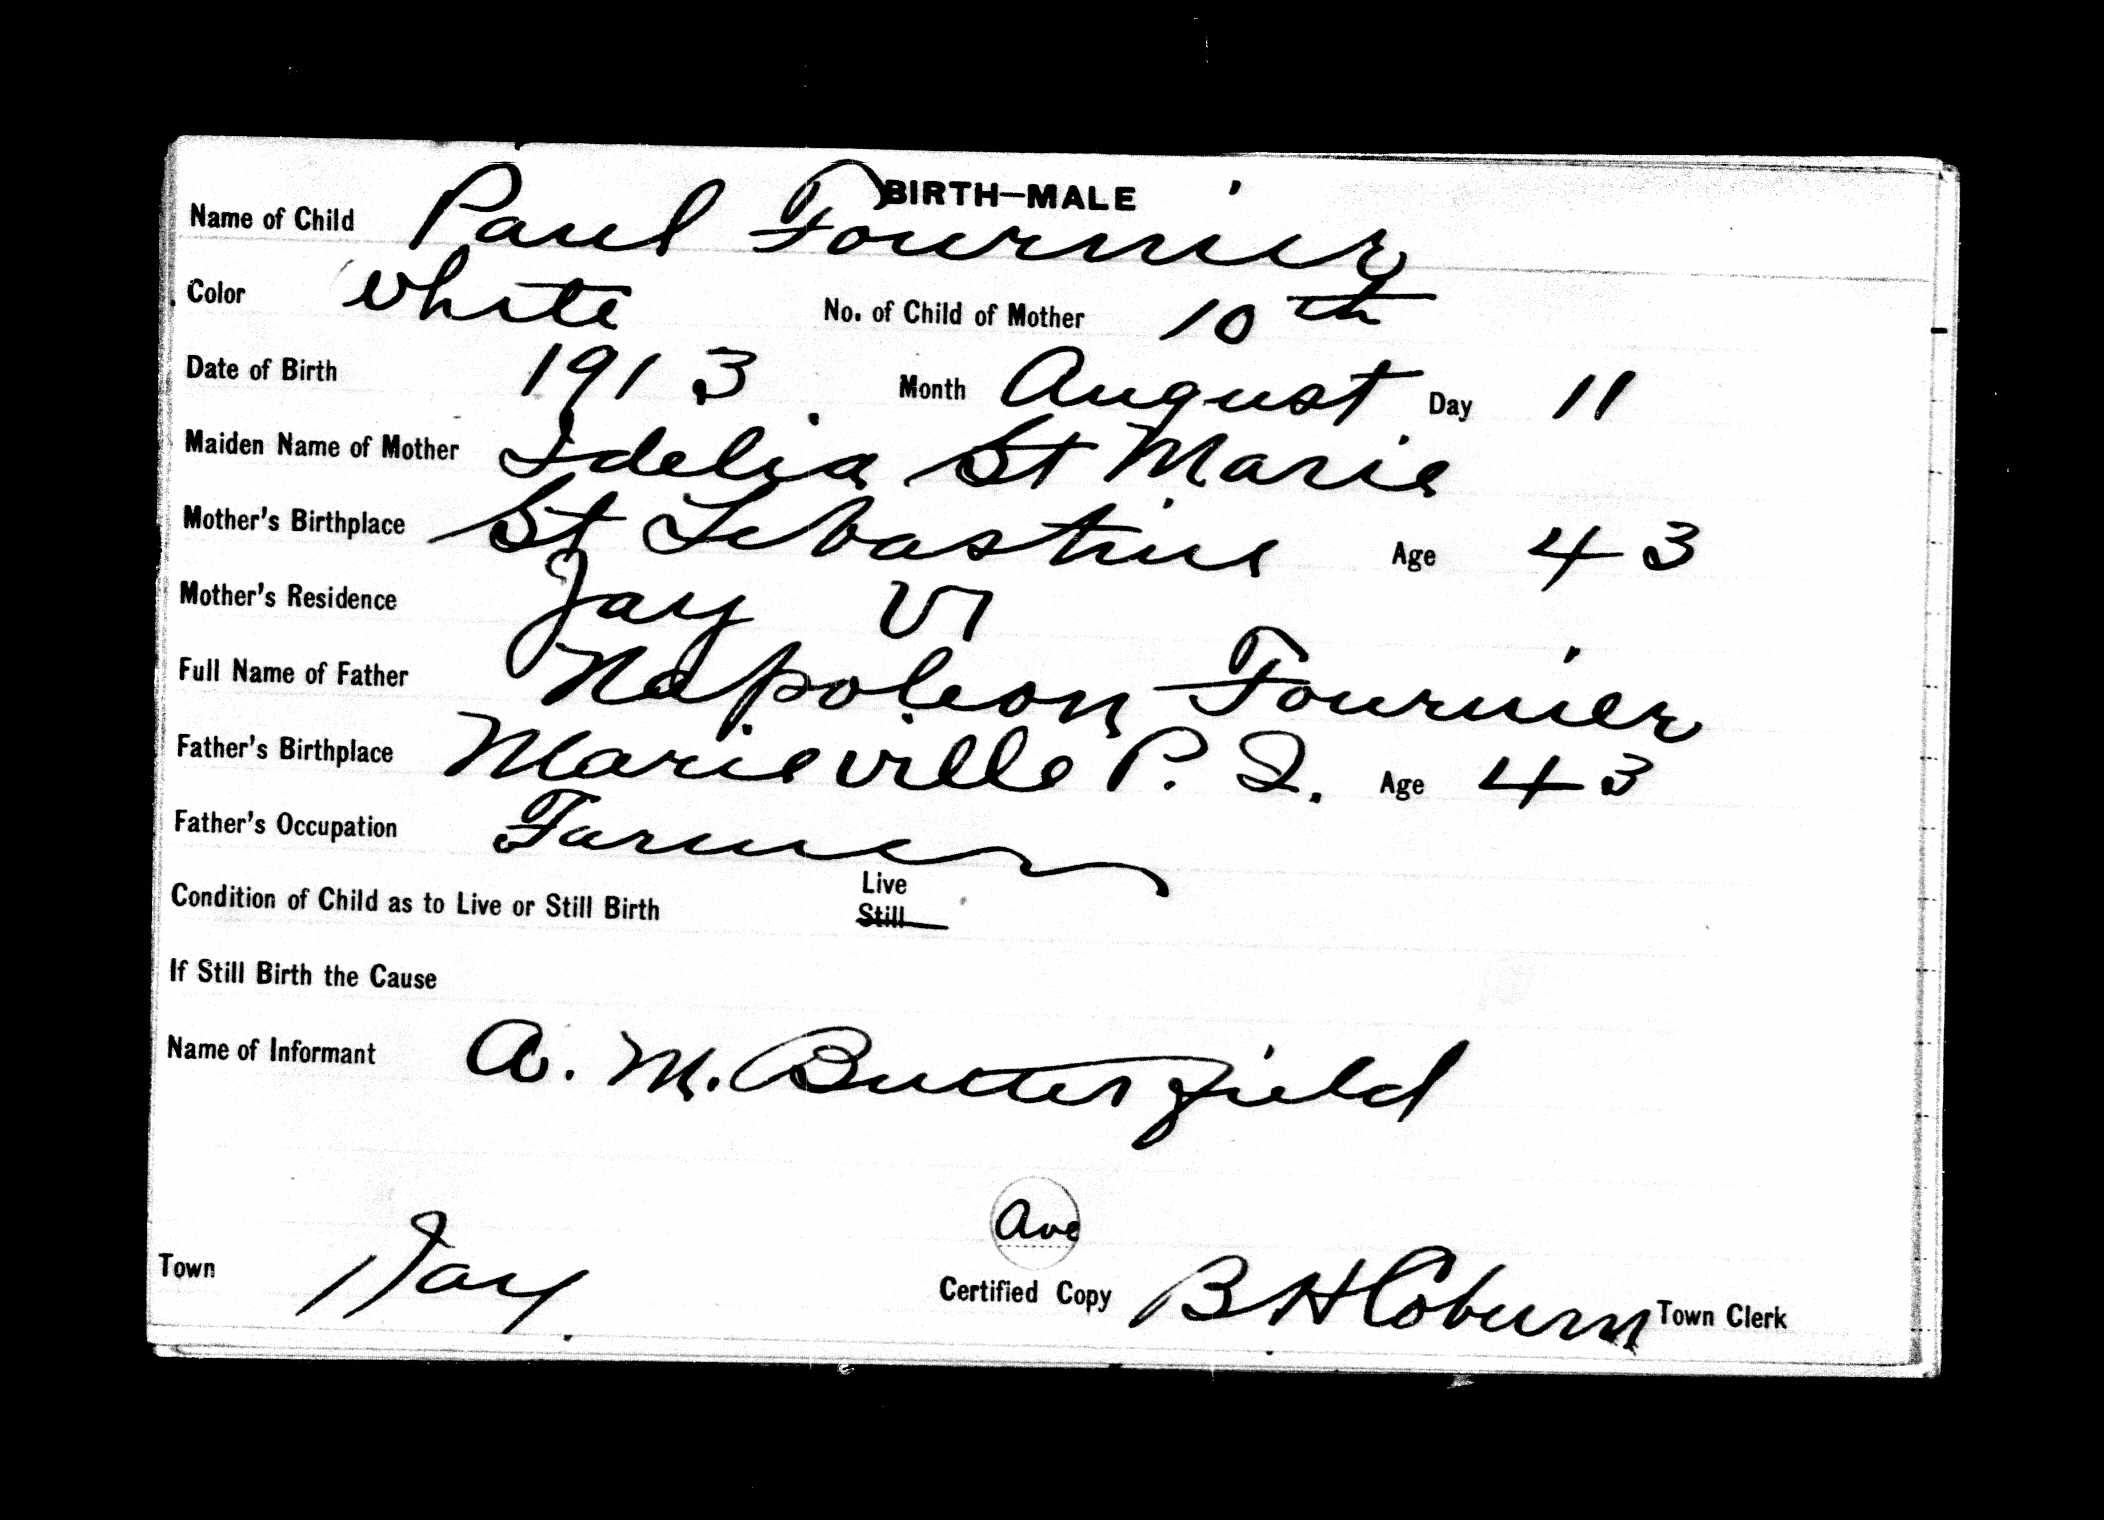 BIRTH—MALE
Name of Child Paul Fournier
Color white No. of Child of Mother 10th
Date of Birth 1913 Month August Day 11
Maiden Name of Mother Idelia St Marie
Mother's Birthplace St Sebastine Age 43
Mother's Residence Jay Vt
Full Name of Father Napoleon Fournier
Father's Birthplace Marieville P. Q. Age 43
Father's Occupation Farmer
Condition of Child as to Live or Still Birth Live
Still
If Still Birth the Cause
Name of Informant A. M. Butterfield
Ave
Town Jay Certified Copy B H Coburn Town Clerk